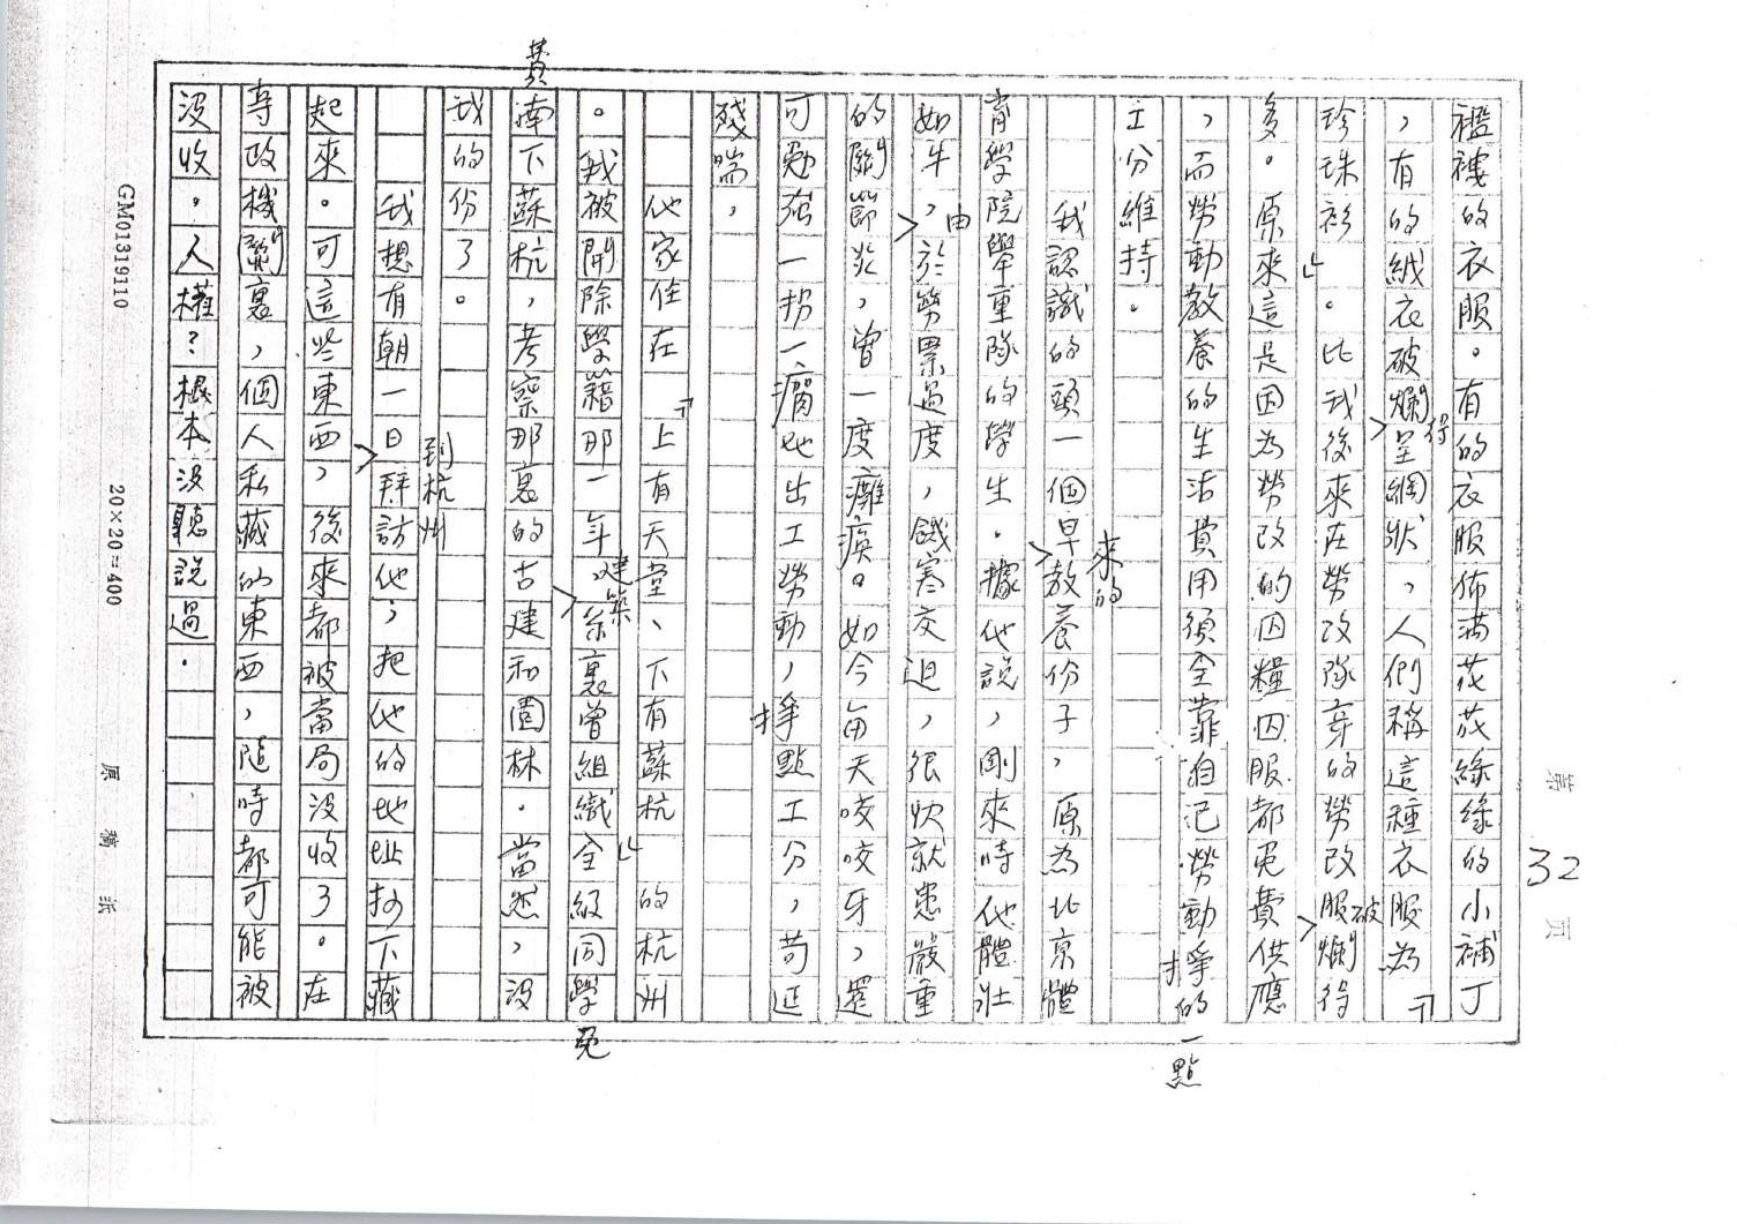 襤褸的衣服。有的衣服佈滿花花綠綠的小補丁
，有的絨衣破爛得呈網狀，人們稱這種衣服為「
珍珠衫」。比我後來在勞改隊穿的勞改服破爛得
多。原來這是因為勞改的囚糧囚服都免費供應
，而勞動教養的生活費用須全靠自己勞動掙的一點
工分維持。
我認識的頭一個早來的教養份子，原為北京體
育學院舉重隊的學生。據他說，剛來時他體壯
如牛，由於勞累過度，饑寒交迫，很快就患嚴重
的關節炎，曾一度癱瘓。如今每天咬咬牙，還
可勉強一拐一瘸地出工勞動，掙點工分，苟延
殘喘，
他家住在「上有天堂、下有蘇杭」的杭州
。我被開除學籍那一年，建築系裏曾組織全級同學免
費南下蘇杭，考察那裏的古建和園林。當然，沒
我的份了。
我想有朝一日到杭州拜訪他，把他的地址抄下藏
起來。可這些東西，後來都被當局沒收了。在
專政機關裏，個人私藏的東西，隨時都可能被
沒收。人權？根本沒聽說過。
第 32 页
GM01319110
20×20=400
原稿纸